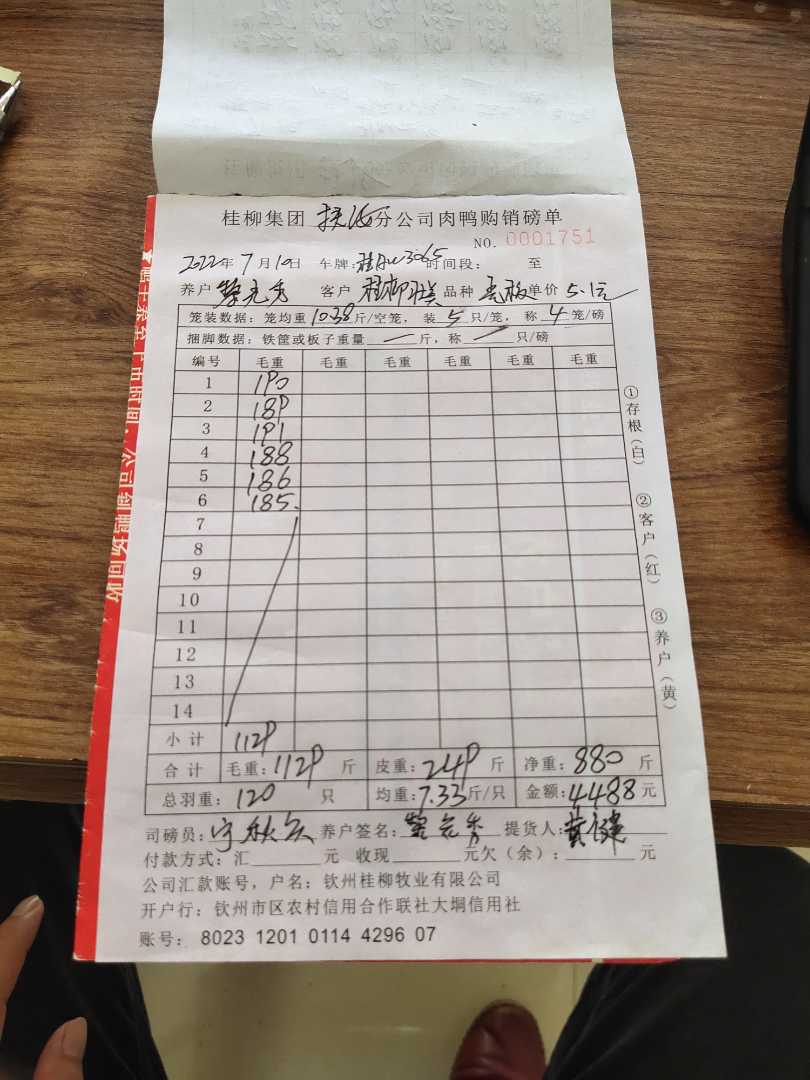 桂柳集团 扶海 分公司肉鸭购销磅单
NO. 0001751
2022年 7月10日 车牌: 3065 时间段: 至
养户 客户 桂柳 品种 毛板 单价 5.1元
笼装数据: 笼均重 10.38 斤/空笼, 装 5 只/笼, 称 4 笼/磅
捆脚数据: 铁筐或板子重量 — 斤, 称 — 只/磅
编号 毛重 毛重 毛重 毛重 毛重
1 190
2 189
3 191
4 188
5 186
6 185
7
8
9
10
11
12
13
14
小计 1129
合计 毛重: 1129 斤 皮重: 249 斤 净重: 880 斤
总羽重: 120 只 均重: 7.33 斤/只 金额: 4488 元
司磅员: 养户签名: 提货人: 黄健
付款方式: 汇 元 收现 元 欠(余): 元
公司汇款账号, 户名: 钦州桂柳牧业有限公司
开户行: 钦州市区农村信用合作联社大垌信用社
账号: 8023 1201 0114 4296 07
①存根(白)
②客户(红)
③养户(黄)